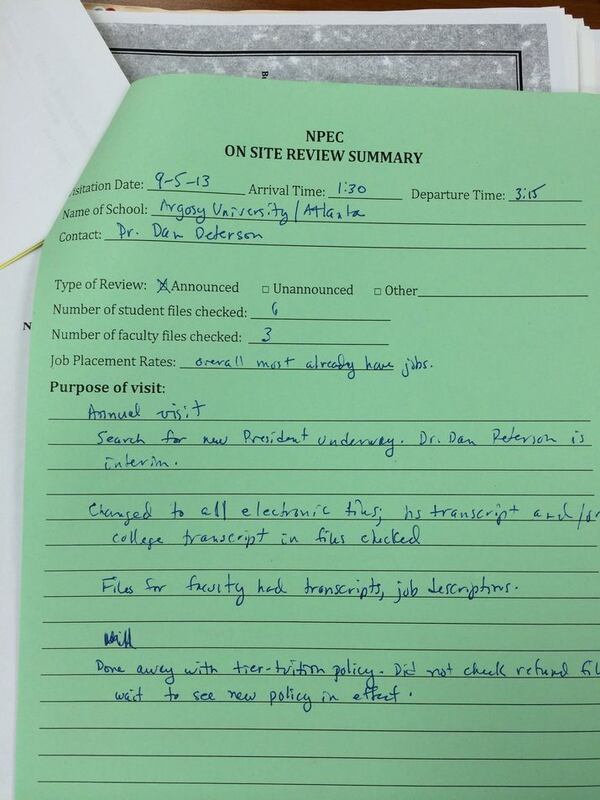 NPEC
ON SITE REVIEW SUMMARY
isitation Date: 9-5-13 Arrival Time: 1:30 Departure Time: 3:15
Name of School: Argosy University/Atlanta
Contact: Dr. Dan Peterson
Type of Review: ☒ Announced ☐ Unannounced ☐ Other
Number of student files checked: 6
Number of faculty files checked: 3
Job Placement Rates: overall most already have jobs.
Purpose of visit:
Annual visit
Search for new President underway. Dr. Dan Peterson is
interim.
Changed to all electronic files; hs transcript and/or
college transcript in files checked
Files for faculty had transcripts, job descriptions.
Done away with tier-tuition policy. Did not check refund fil
wait to see new policy in effect.